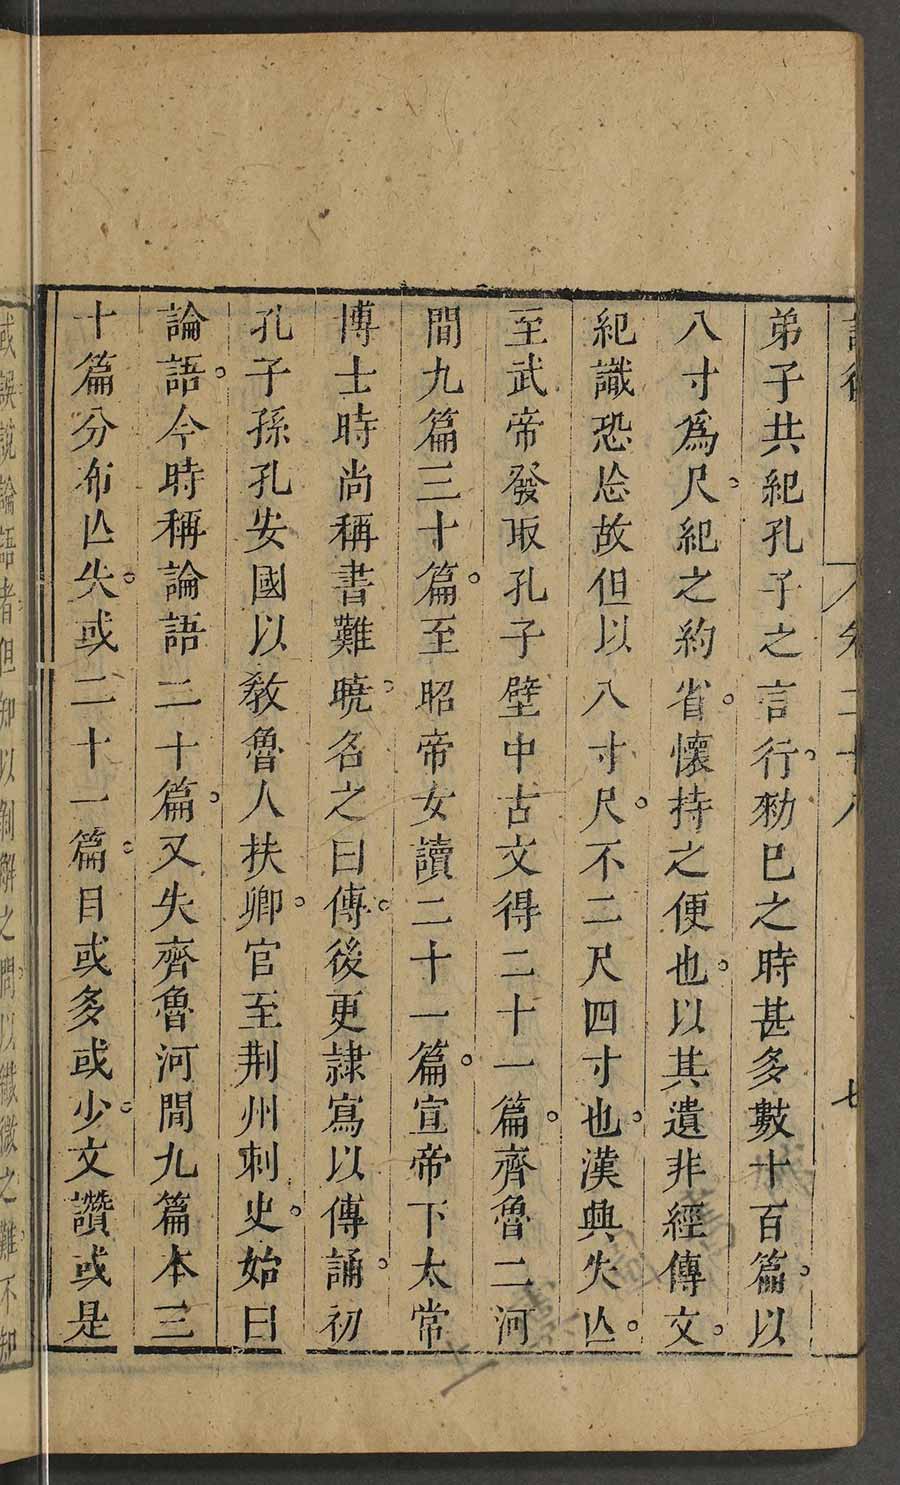 弟子共紀孔子之言行。勑已之時甚多數十百篇。以
八寸爲尺。紀之約省。懷持之便也。以其遺非經傳文。
紀識恐忘故但以八寸尺。不二尺四寸也。漢興失亾。
至武帝發取孔子壁中古文得二十一篇。齊魯二河
間九篇三十篇。至昭帝女讀二十一篇。宣帝下太常
博士時尚稱書難曉。名之曰傳。後更隷寫以傳誦。初
孔子孫孔安國以教魯人扶卿。官至荆州刺史。始曰
論語。今時稱論語二十篇。又失齊魯河間九篇本三
十篇分布亾失。或二十一篇。目或多或少。文讚或是
或誤說論語者但知以剝解之問。以纎微之難。不知